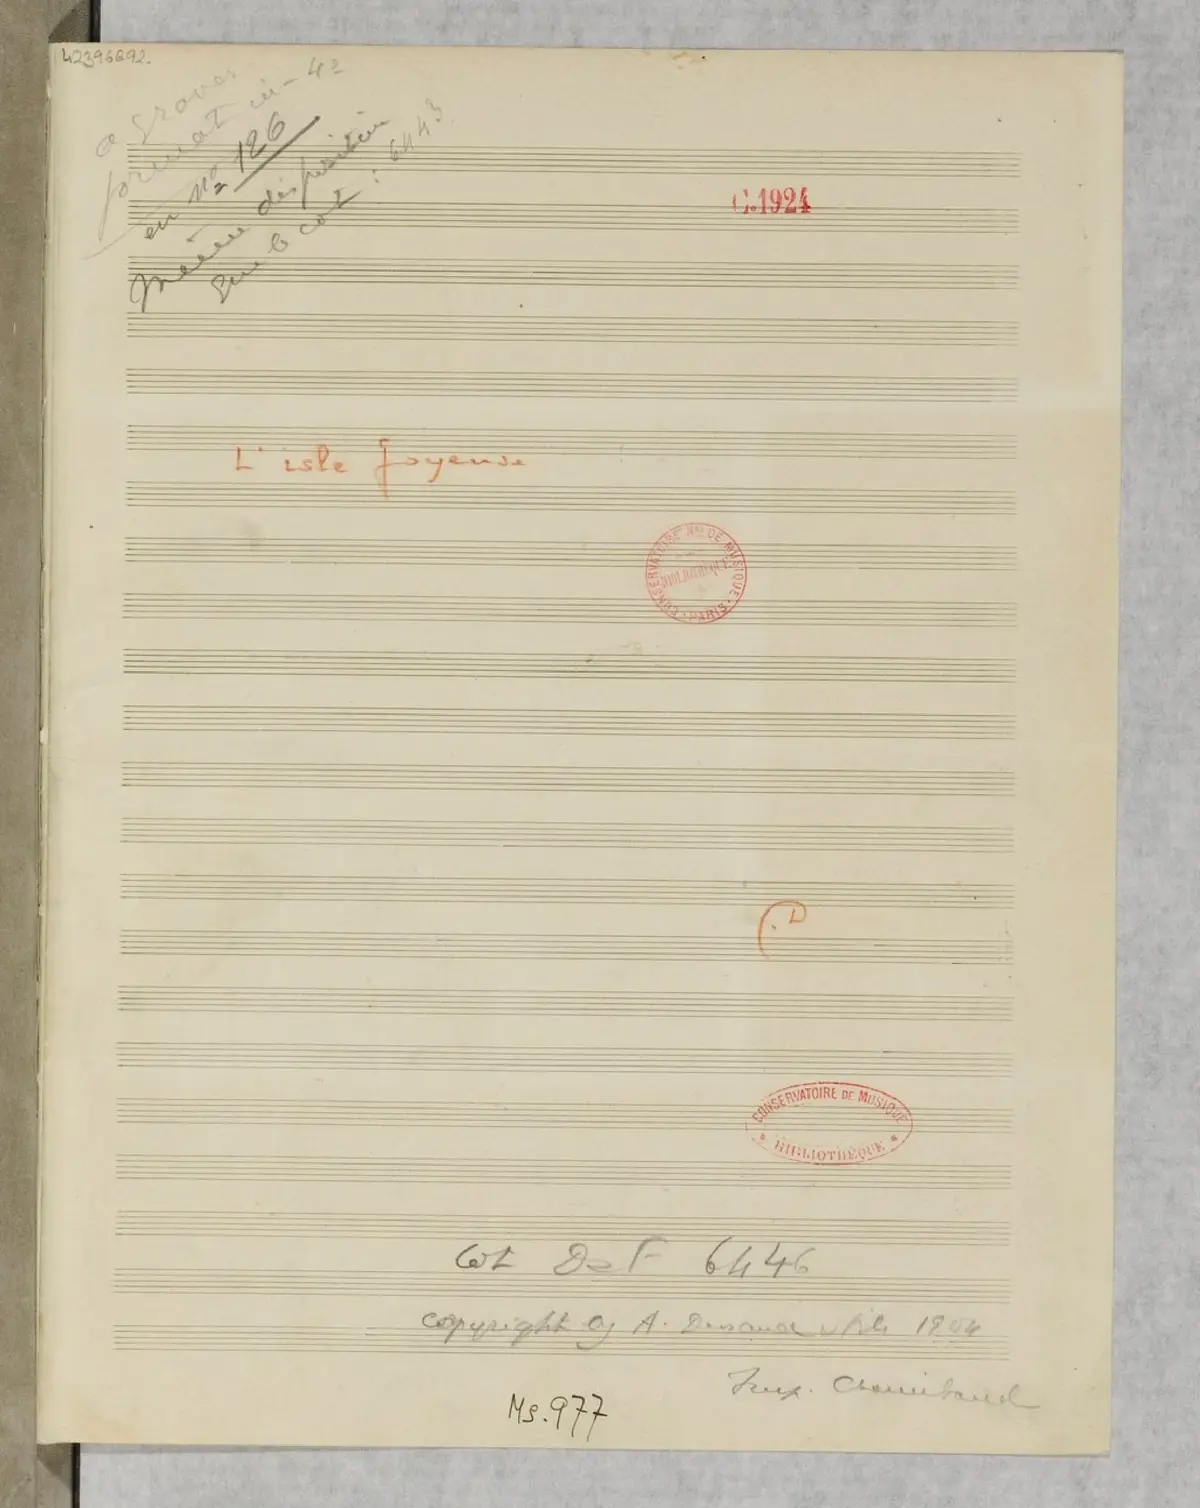 42396892.
a graver
format in-4º
en Nº 126
même disposition
que le cot : 6443
C.1924
L'isle Joyeuse
CONSERVATOIRE Nal DE MUSIQUE
BIBLIOTHÈQUE
PARIS
CONSERVATOIRE DE MUSIQUE
BIBLIOTHÈQUE
Cot D et F 6446
copyright by A. Durand et fils 1904
Imp. Chaimbaud
Ms. 977